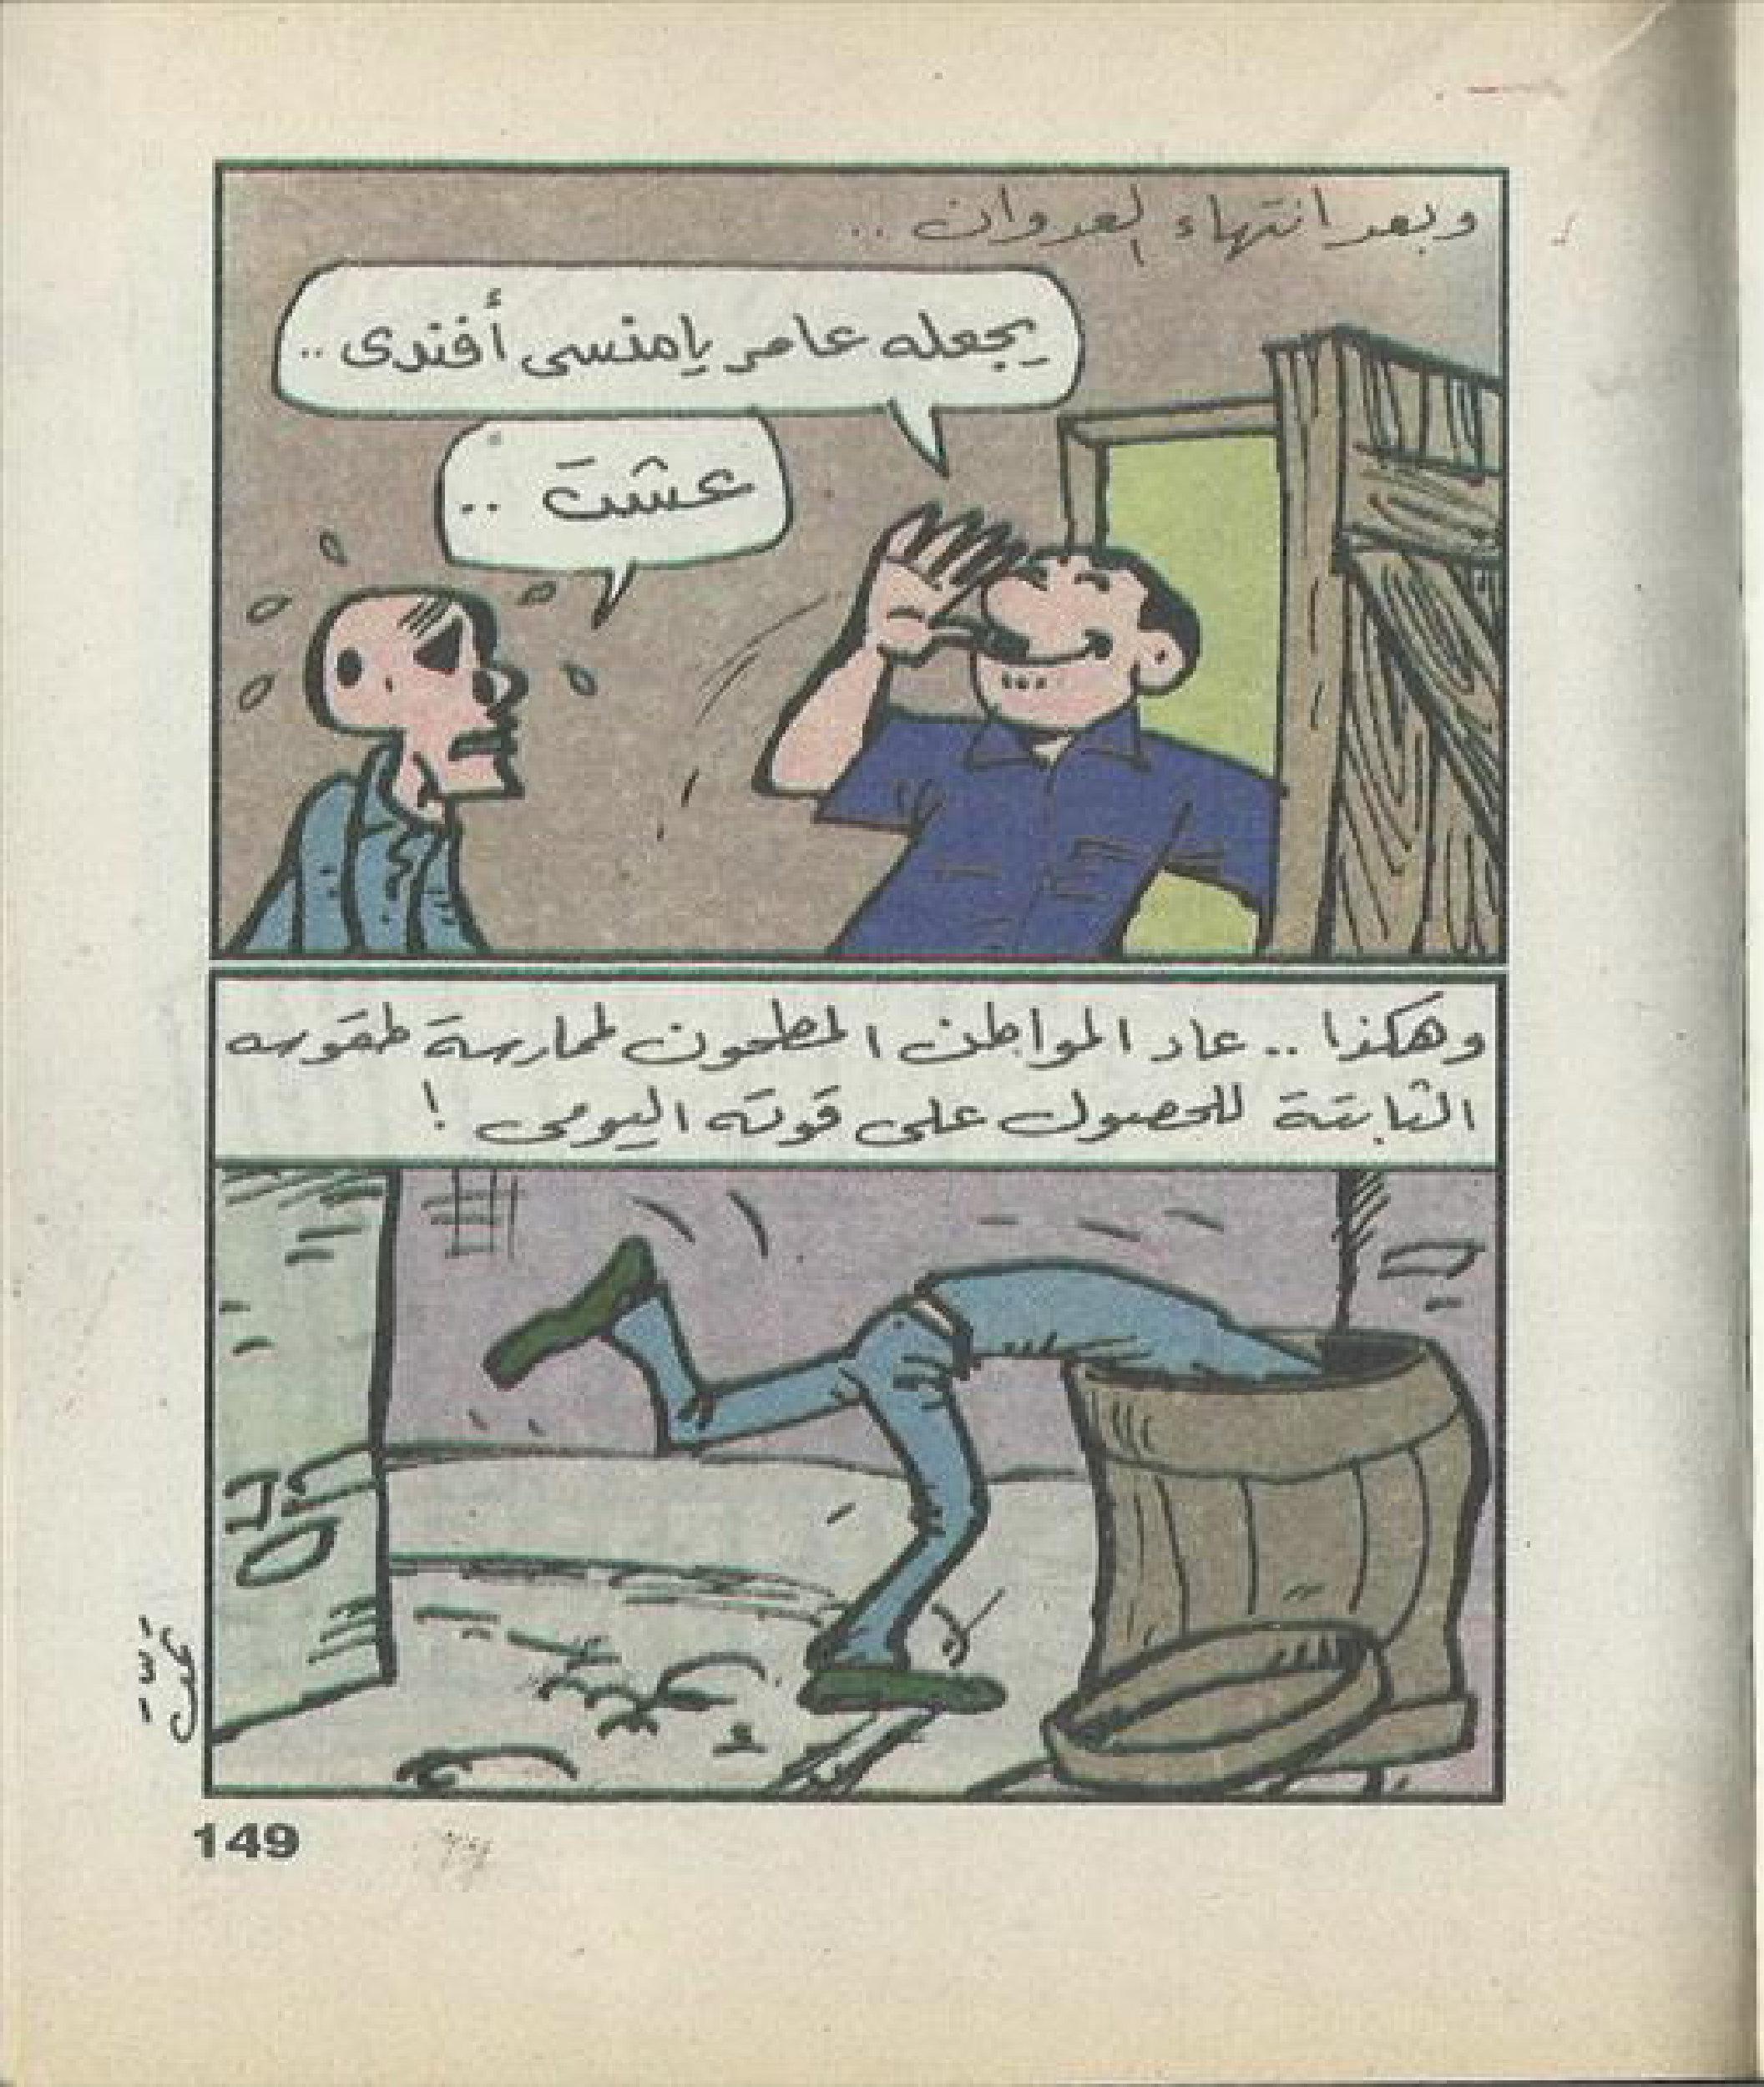 وبعد انتهاء العدوان ..
يجعله عامر يا منسى أفندى ..
عشت ..
وهكذا .. عاد المواطن المطحون لممارسة طقوسه
الثابتة للحصول على قوته اليومى !
149